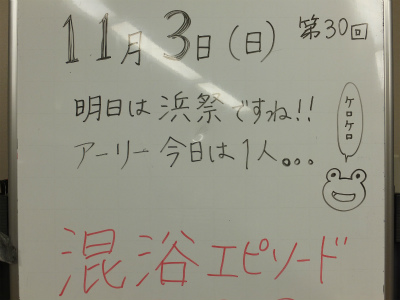 11月3日(日) 第30回
明日は浜祭ですね!!
アーリー今日は1人...
ケロケロ
混浴エピソード